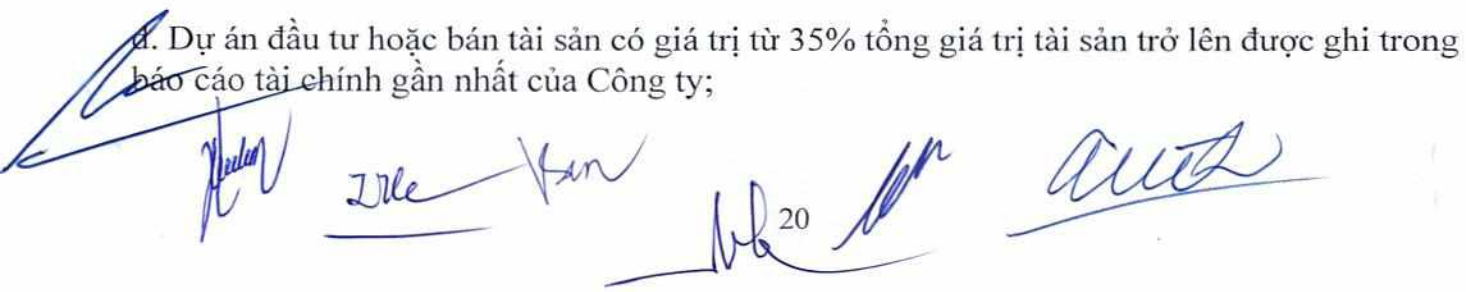 d. Dự án đầu tư hoặc bán tài sản có giá trị từ 35% tổng giá trị tài sản trở lên được ghi trong
báo cáo tài chính gần nhất của Công ty;
20